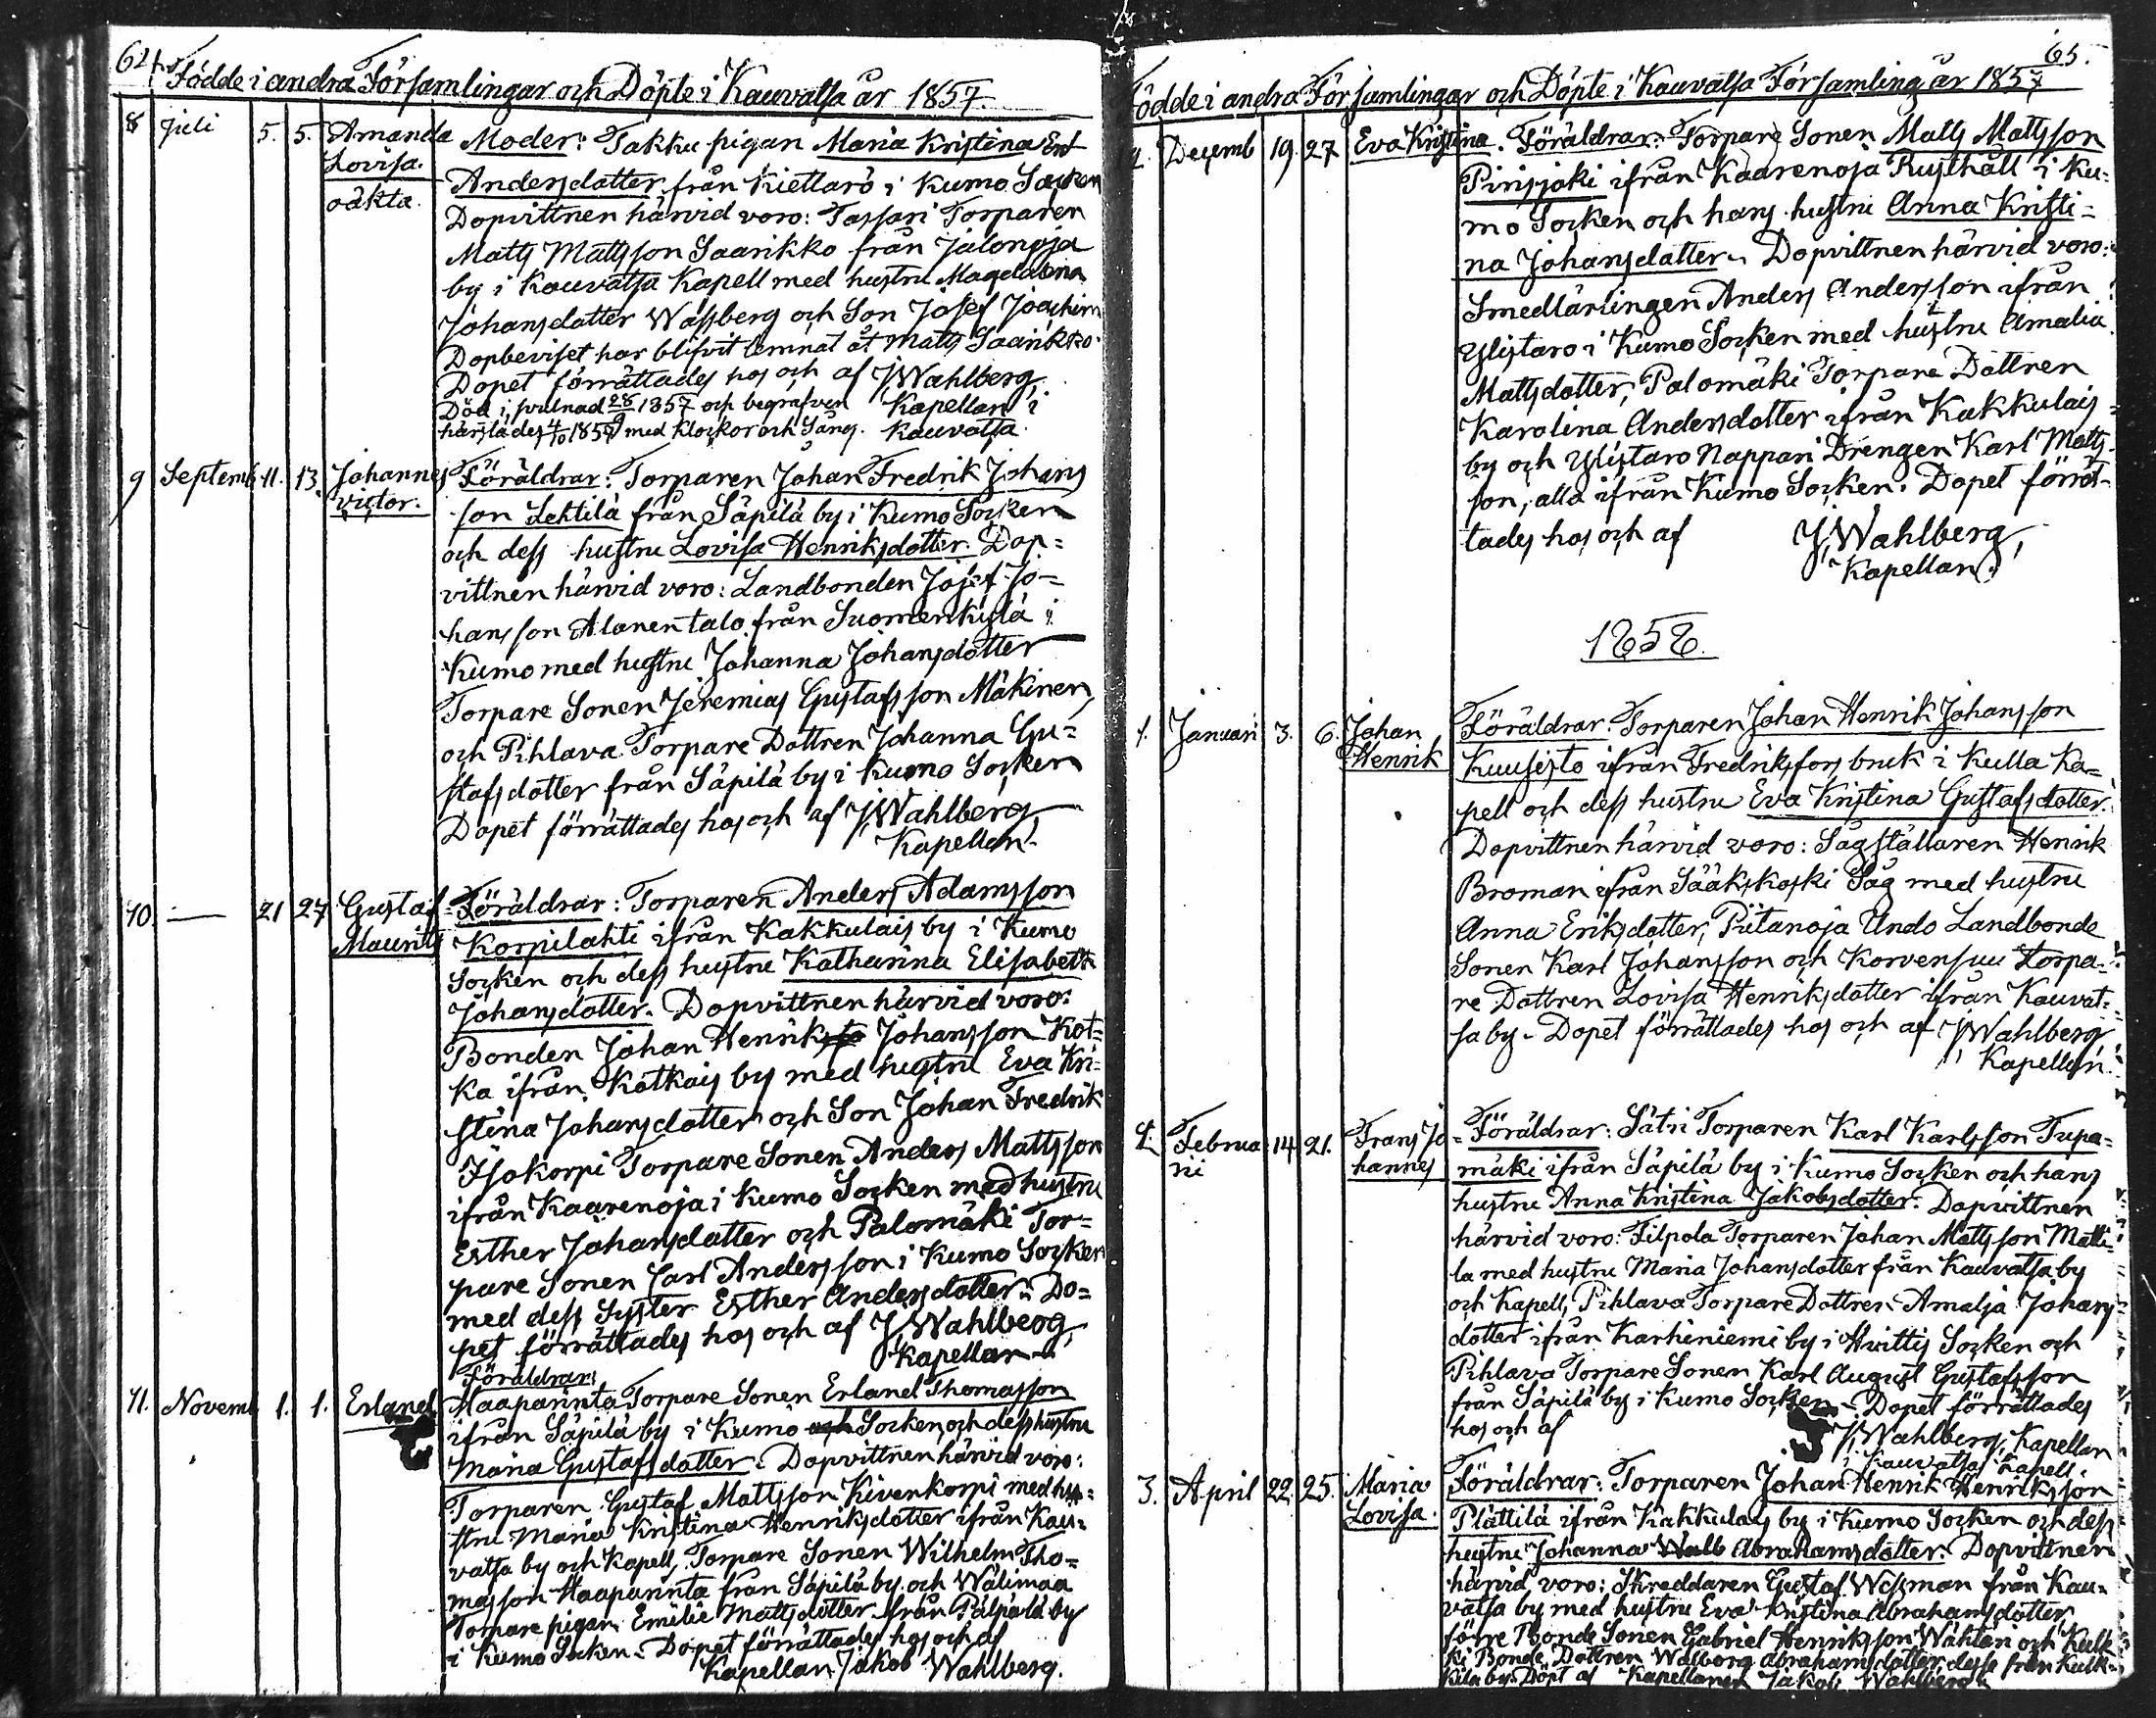 64.
Födde i andra Församlingar och Döpte i Kauvatsa år 1857.
8 Juli 5. 5. Amanda Lovisa. oäkta.
Moder: Takku pigan Maria Kristina
Andersdotter från Kiettarö i Kumo Socken
Dopvittnen härvid voro: Tassari Torparen
Matts Mattsson Saarikko från Jalonoja
by i Kauvatsa Kapell med hustru Magdalena
Johansdotter Wassberg och Son Josef Joachim
Dopbeviset har blifvit lemnat åt Matts Saarikko.
Dopet förrättades hos och af J Wahlberg,
Död i 28 1857 och begrafven Kapellan i
härstädes 4/10 1857 med Klockor och Sång. Kauvatsa.
9 Septemb 11. 13. Johannes Victor.
Föräldrar: Torparen Johan Fredrik Johans
son Lehtilä från Säpilä by i Kumo Socken
och dess hustru Lovisa Henriksdotter. Dop=
vittnen härvid voro: Landbonden Josef Jo=
hansson Alanentalo från Suomenkylä i
Kumo med hustru Johanna Johansdotter
Torpare Sonen Jeremias Gustafsson Mäkinen,
och Pihlava Torpare Dottren Johanna Gu=
stafsdotter från Säpilä by i Kumo Socken
Dopet förrättades hos och af J Wahlberg,
Kapellan.
10. — 21 27 Gustaf Maurits
Föräldrar: Torparen Anders Adamsson
Korpilahti ifrån Kakkulais by i Kumo
Socken och dess hustru Katharina Elisabeth
Johansdotter. Dopvittnen härvid voro:
Bonden Johan Henrik Johansson Kot=
ka ifrån Kotkais by med hustru Eva Kri=
stina Johansdotter och Son Johan Fredrik
Isokorpi Torpare Sonen Anders Mattsson
ifrån Kaarenoja i Kumo Socken med hustru
Esther Johansdotter och Palomäki Tor=
pare Sonen Carl Andersson i Kumo Socken
med dess Syster Esther Andersdotter. Do=
pet förrättades hos och af J Wahlberg,
Kapellan.
11. Novemb 1. 1. Erland
Föräldrar:
Haaparinta Torpare Sonen Erland Thomasson
ifrån Säpilä by i Kumo och Socken och dess hustru
Maria Gustafsdotter. Dopvittnen härvid voro:
Torparen Gustaf Mattsson Kivenkorpi med hu=
stru Maria Kristina Henriksdotter ifrån Kau=
vatsa by och Kapell, Torpare Sonen Wilhelm Tho=
masson Haaparinta från Säpilä by och Wälimaa
Torpare pigan Emelie Mattsdotter från Pälpälä by
i Kumo Socken. Dopet förrättades hos och af
Kapellan Jakob Wahlberg.
65.
Födde i andra Församlingar och Döpte i Kauvatsa Församling år 1857
Decemb 19. 27 Eva Kristina.
Föräldrar: Torpare Sonen Matts Mattsson
Pirisjoki ifrån Kaarenoja Rusthåll i Ku=
mo Socken och hans hustru Anna Kristi=
na Johansdotter. Dopvittnen härvid voro:
Smedlärlingen Anders Andersson ifrån
Ylistaro i Kumo Socken med hustru Amalia
Mattsdotter, Palomäki Torpare Dottren
Karolina Andersdotter ifrån Kakkulais
by och Ylistaro Nappari Drengen Karl Matts=
son, alla ifrån Kumo Socken. Dopet förrät=
tades hos och af J Wahlberg,
Kapellan.
1858.
1. Januari 3. 6. Johan Henrik
Föräldrar: Torparen Johan Henrik Johansson
Kuusisto ifrån Fredriksfors bruk i Kulla Ka=
pell och dess hustru Eva Kristina Gustafsdotter.
Dopvittnen härvid voro: Sågställaren Henrik
Broman ifrån Sääkskoski Såg med hustru
Anna Eriksdotter, Piitanoja Undo Landbonde
Sonen Karl Johansson och Korvensuu Torpa=
re Dottren Lovisa Henriksdotter ifrån Kauvat=
sa by. Dopet förrättades hos och af J Wahlberg
Kapellan.
2. Februa ri 14 21. Frans Jo= hannes
Föräldrar: Sätri Torparen Karl Karlsson Tupa=
mäki ifrån Säpilä by i Kumo Socken och hans
hustru Anna Kristina Jakobsdotter. Dopvittnen
härvid voro: Filpola Torparen Johan Mattsson Matti=
la med hustru Maria Johansdotter från Kauvatsa by
och Kapell, Pihlava Torpare Dottren Amalja Johans=
dotter ifrån Karhiniemi by i Hvittis Socken och
Pihlava Torpare Sonen Karl August Gustafsson
från Säpilä by i Kumo Socken. Dopet förrättades
hos och af J Wahlberg, Kapellan
i Kauvatsa Kapell.
3. April 22. 25. Maria Lovisa.
Föräldrar: Torparen Johan Henrik Henriksson
Plättilä ifrån Kakkulais by i Kumo Socken och dess
hustru Johanna Walb Abrahamsdotter. Dopvittnen
härvid voro: Skreddaren Gustaf Wessman från Kau=
vatsa by med hustru Eva Kristina Abrahamsdotter
Bonde Sonen Gabriel Henriksson Wähtäri och Kulk
ki Bonde Dottren Walborg Abrahamsdotter, desse från Kulk=
kila by. Döpt af Kapellanen Jakob Wahlberg.